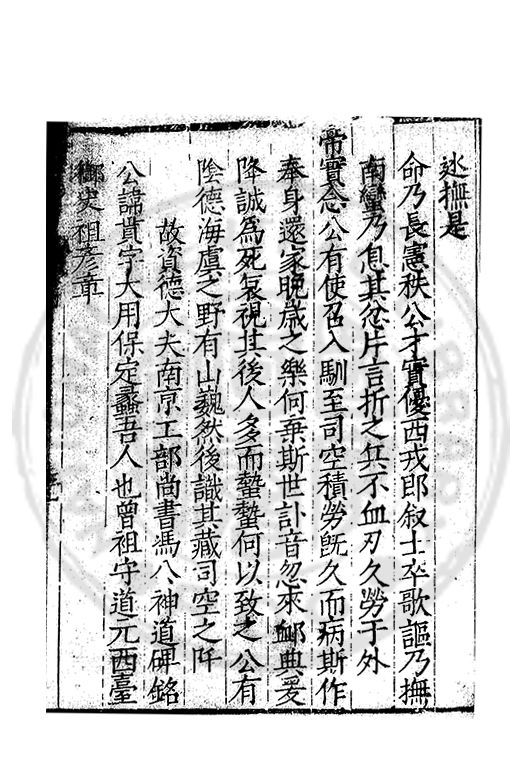 迯撫是
命乃長憲秩公才實優西戎即叙士卒歌謳乃撫
南蠻乃息其忿片言折之兵不血刃久勞于外
帝實念公有使召入馴至司空積勞旣久而病斯作
奉身還家晩歲之樂何棄斯世訃音忽來䘏典爰
降誠為死哀視其後人多而蟄蟄何以致之公有
陰德海虞之野有山巍然後識其藏司空之阡
故資德大夫南京工部尚書馮公神道碑銘
公諱貫字大用保定蠡吾人也曾祖守道元西臺
御史祖彥章